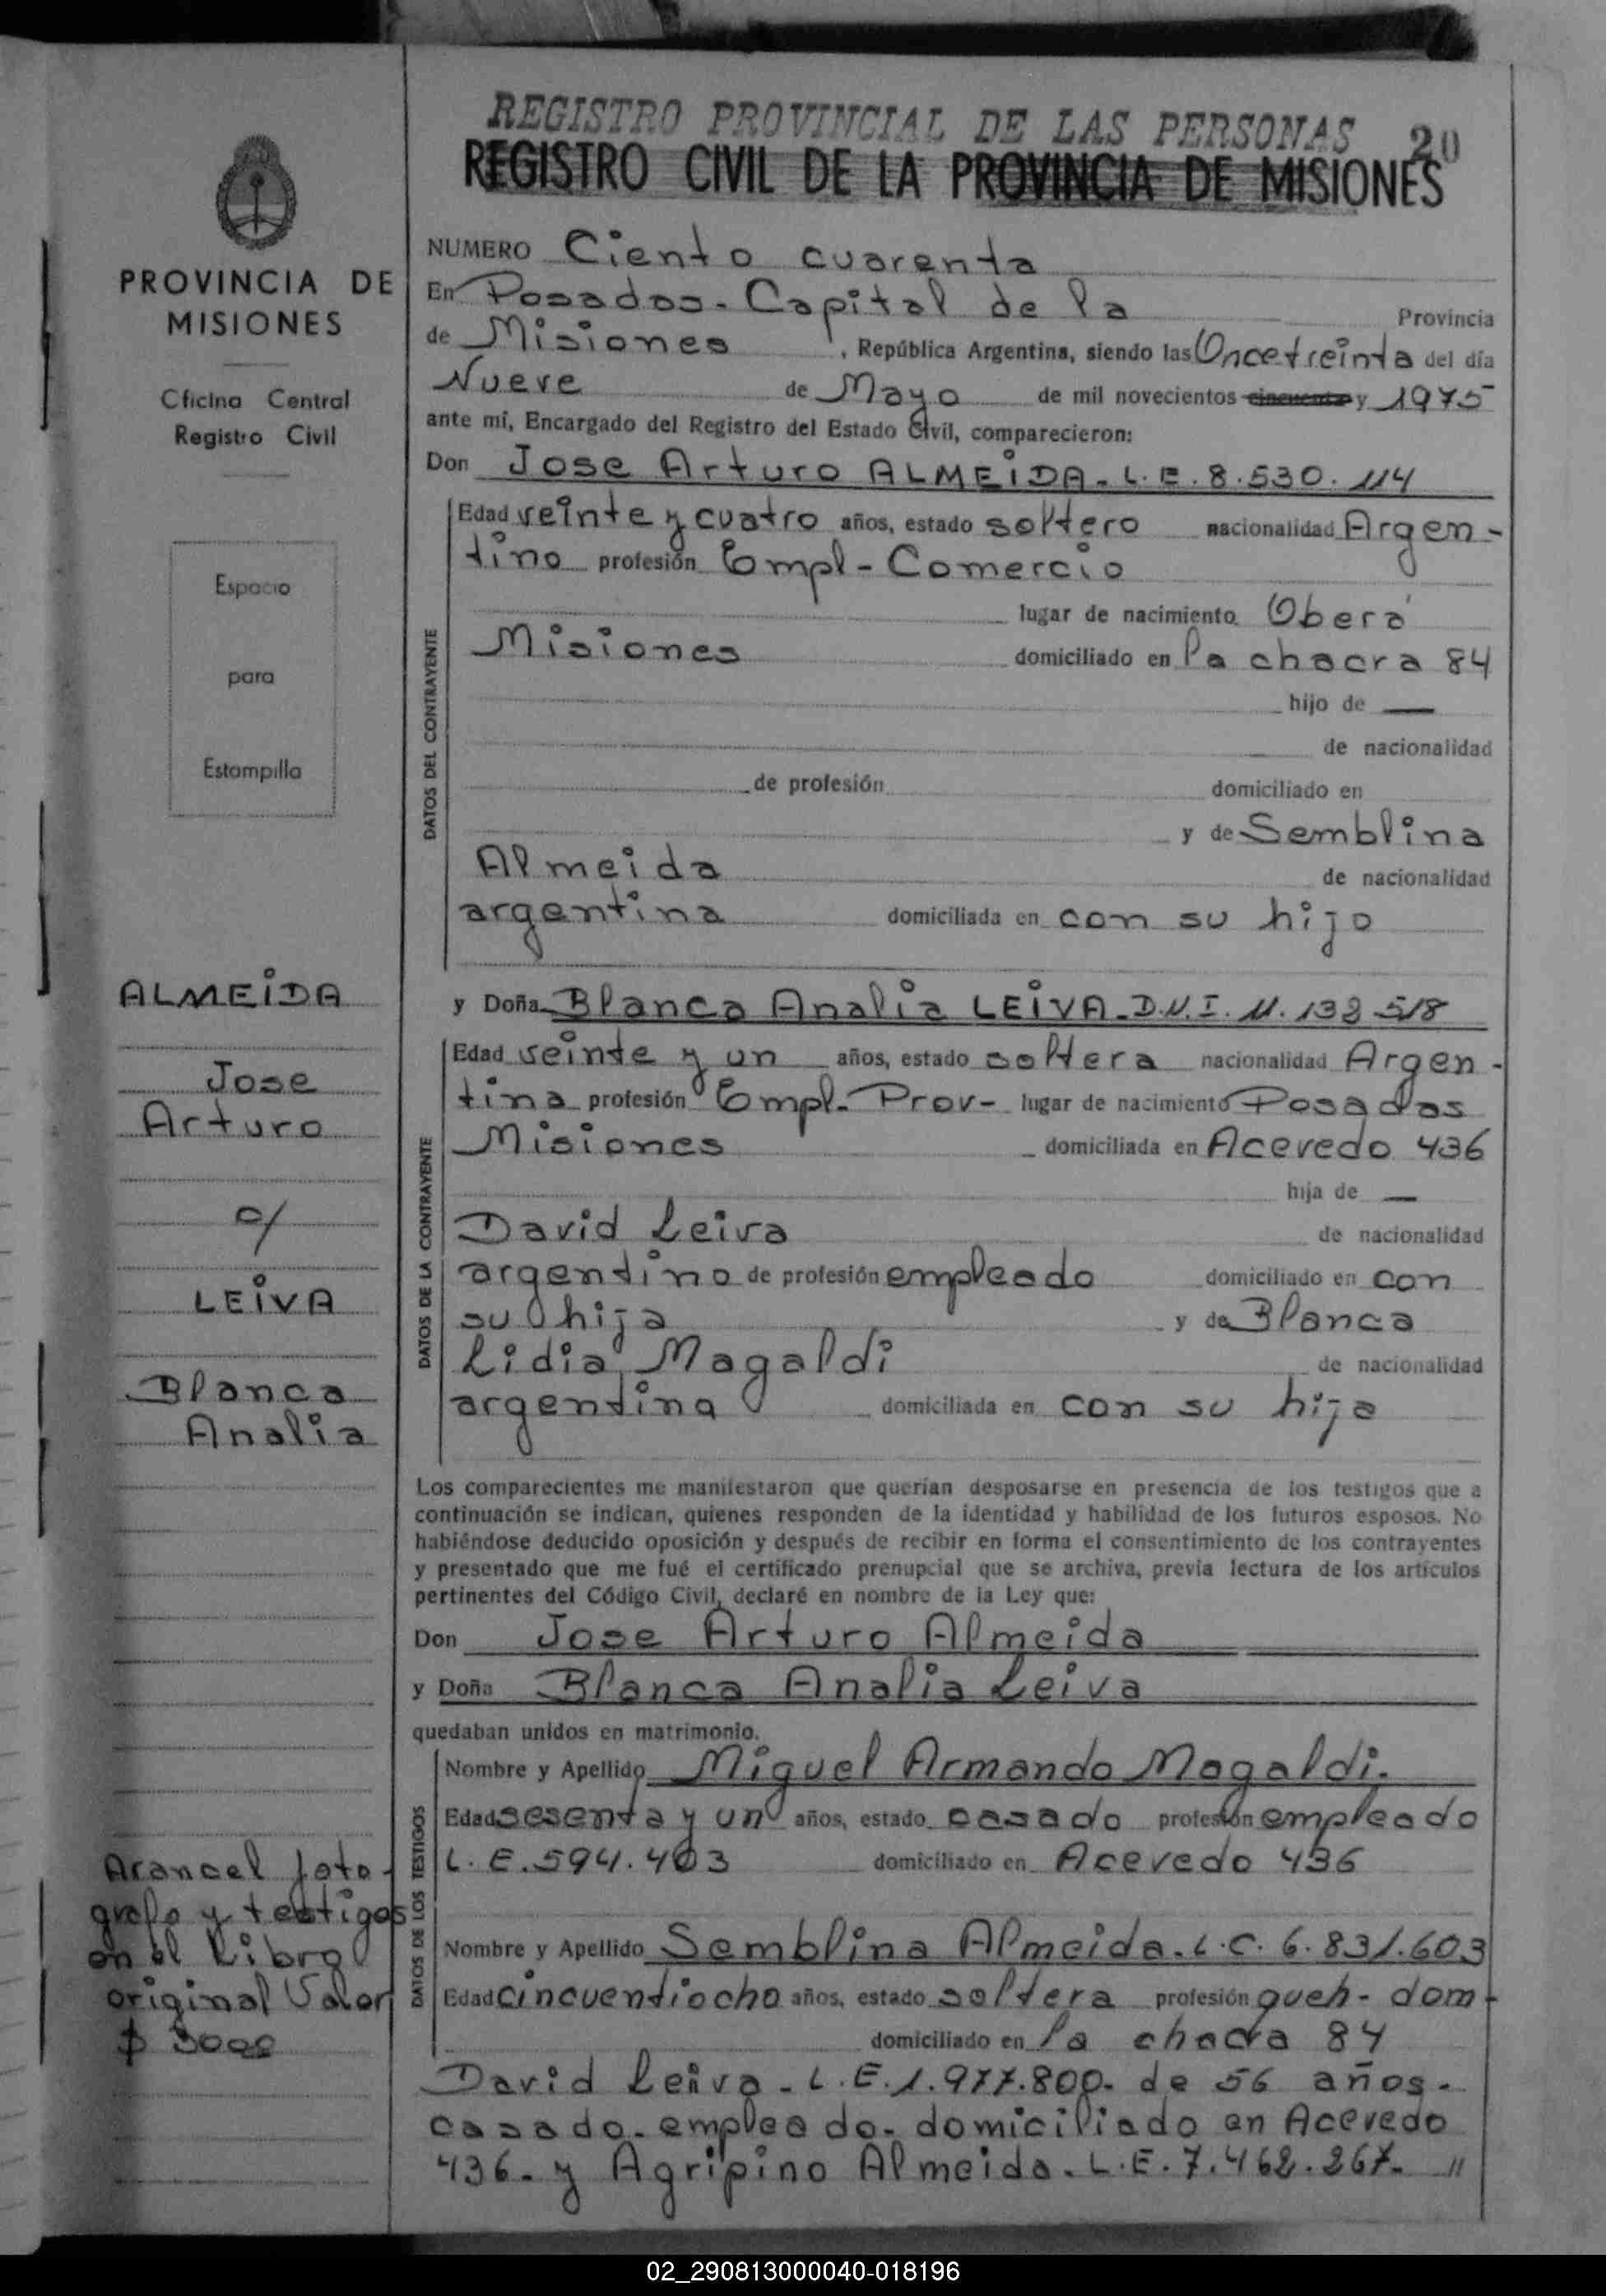 REGISTRO PROVINCIAL DE LAS PERSONAS 20
REGISTRO CIVIL DE LA PROVINCIA DE MISIONES
PROVINCIA DE
MISIONES
Oficina Central
Registro Civil
Espacio
para
Estampilla
ALMEIDA
Jose
Arturo
c/
LEIVA
Blanca
Analia
Arancel foto-
grafo y testigos
en el Libro
original Valor
$ 3000
NUMERO Ciento cuarenta
En Posadas - Capital de la Provincia
de Misiones, República Argentina, siendo las Once treinta del día
Nueve de Mayo de mil novecientos cincuenta y 1975
ante mí, Encargado del Registro del Estado Civil, comparecieron:
Don Jose Arturo ALMEIDA - L.E. 8.530.114
DATOS DEL CONTRAYENTE
Edad veinte y cuatro años, estado soltero nacionalidad Argen-
tino profesión Empl - Comercio
lugar de nacimiento Oberá
Misiones domiciliado en la chacra 84
hijo de —
de nacionalidad
de profesión domiciliado en
y de Semblina
Almeida de nacionalidad
argentina domiciliada en con su hijo
y Doña Blanca Analia LEIVA - D.N.I. 11.138 518
DATOS DE LA CONTRAYENTE
Edad veinte y un años, estado soltera nacionalidad Argen-
tina profesión Empl. Prov- lugar de nacimiento Posadas
Misiones domiciliada en Acevedo 436
hija de —
David Leiva de nacionalidad
argentino de profesión empleado domiciliado en con
su hija y de Blanca
Lidia Magaldi de nacionalidad
argentina domiciliada en con su hija
Los comparecientes me manifestaron que querían desposarse en presencia de los testigos que a
continuación se indican, quienes responden de la identidad y habilidad de los futuros esposos. No
habiéndose deducido oposición y después de recibir en forma el consentimiento de los contrayentes
y presentado que me fué el certificado prenupcial que se archiva, previa lectura de los artículos
pertinentes del Código Civil, declaré en nombre de la Ley que:
Don Jose Arturo Almeida
y Doña Blanca Analia Leiva
quedaban unidos en matrimonio.
DATOS DE LOS TESTIGOS
Nombre y Apellido Miguel Armando Magaldi.
Edad sesenta y un años, estado casado profesión empleado
L.E. 594.403 domiciliado en Acevedo 436
Nombre y Apellido Semblina Almeida - L.C. 6.831.603
Edad cincuentiocho años, estado soltera profesión queh - dom-
domiciliado en la chacra 84
David Leiva - L.E. 1.977.800 - de 56 años -
casado - empleado - domiciliado en Acevedo
436 - y Agripino Almeida - L.E. 7.462.267 - "
02_290813000040-018196